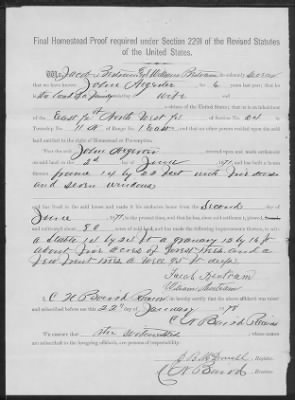 Final Homestead Proof required under Section 2291 of the Revised Statutes
of the United States.
We Jacob Bertram & William Bertram do solemnly swear
that we have known John for years last past;
that he is the head of a family consisting of wife
, a citizen of the United States; that he is an inhabitant
of the East ½ of North West ¼ of Section No. 24
Township 11 N of Range 1 East and that no other person resided upon the said
land entitled to the right of Homestead or Pre-emption.
That the said John entered upon and made settlement
on said land on the 2d day of June, 1871, and has built a house
thereon frame 14 by 28 feet with doors
and seven windows
and has lived in the said house and made it his exclusive home from the Second day of
June, 1871, to the present time, and that he has, since said settlement, plowed,
and cultivated about 50 acres of said land, and has made the following improvements thereon, to wit:
a Stable 14 by 24 ft a granary 12 by 16 ft
about five acres of forest trees and a
few fruit trees a well 95 ft deep
Jacob Bertram
William Bertram
I, C N Baird Receiver do hereby certify that the above affidavit was
subscribed and sworn to before me this 22nd day of January 1878
C N Baird Receiver
We certify that
are subscribed to the foregoing affidavit, are persons of respectability.
J B McDowell, Register.
C N Baird, Receiver.